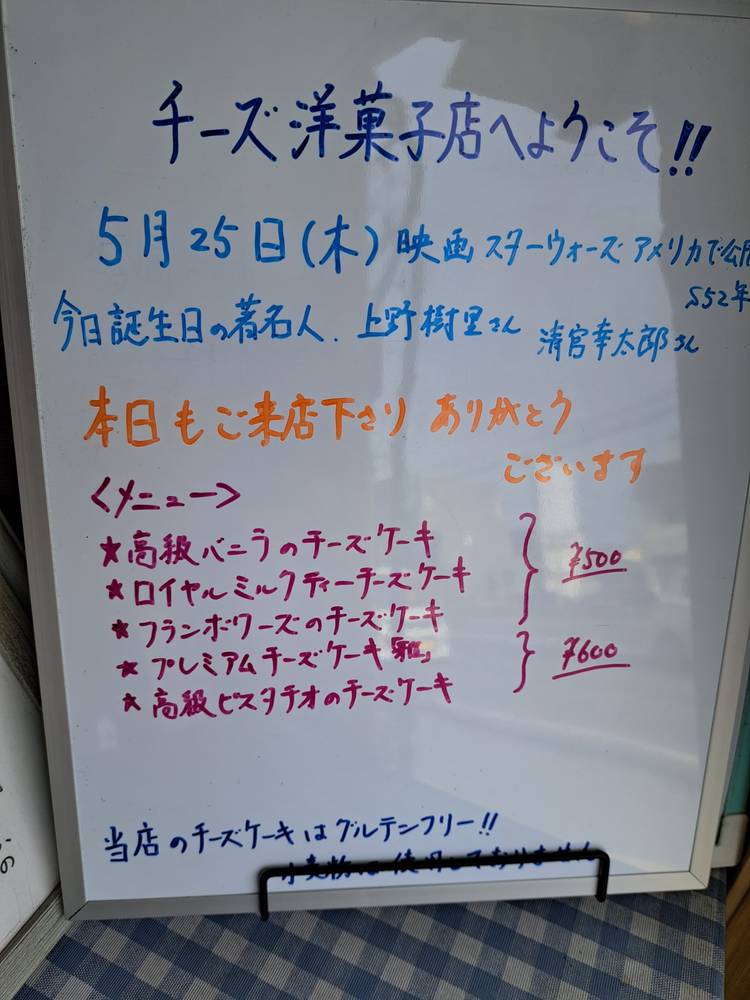 チーズ洋菓子店へようこそ!!
5月25日(木) 映画 スターウォーズ アメリカで公開
S52年
今日誕生日の著名人. 上野樹里さん 清宮幸太郎さん
本日もご来店下さり ありがとう
ございます
<メニュー>
★高級バニラのチーズケーキ
★ロイヤルミルクティーチーズケーキ
★フランボワーズのチーズケーキ
¥500
★プレミアムチーズケーキ「雅」
★高級ピスタチオのチーズケーキ
¥600
当店のチーズケーキはグルテンフリー!!
小麦粉は使用しておりません